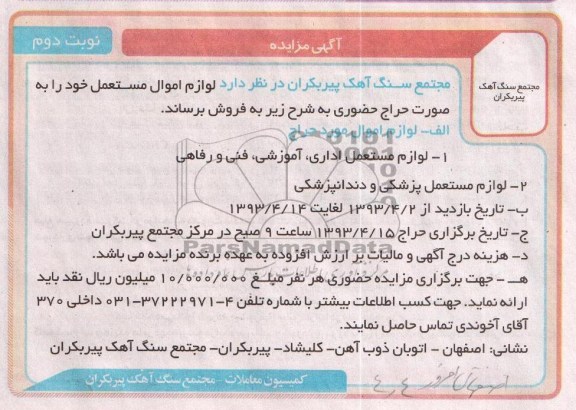 نوبت دوم
آگهی مزایده
مجتمع سنگ آهک
پیربکران
مجتمع سنگ آهک پیربکران در نظر دارد لوازم اموال مستعمل خود را به
صورت حراج حضوری به شرح زیر به فروش برساند.
الف- لوازم اموال مورد حراج
۱- لوازم مستعمل اداری، آموزشی، فنی و رفاهی
۲- لوازم مستعمل پزشکی و دندانپزشکی
ب- تاریخ بازدید از ۱۳۹۳/۴/۲ لغایت ۱۳۹۳/۴/۱۴
ج- تاریخ برگزاری حراج ۱۳۹۳/۴/۱۵ ساعت ۹ صبح در مرکز مجتمع پیربکران
د- هزینه درج آگهی و مالیات بر ارزش افزوده به عهده برنده مزایده می باشد.
هـ - جهت برگزاری مزایده حضوری هر نفر مبلغ ۱۰/۰۰۰/۰۰۰ میلیون ریال نقد باید
ارائه نماید. جهت کسب اطلاعات بیشتر با شماره تلفن ۴-۳۷۲۲۲۹۷۱-۰۳۱ داخلی ۳۷۰
آقای آخوندی تماس حاصل نمایند.
نشانی: اصفهان - اتوبان ذوب آهن- کلیشاد- پیربکران- مجتمع سنگ آهک پیربکران
کمیسیون معاملات - مجتمع سنگ آهک پیربکران
ParsNamadData